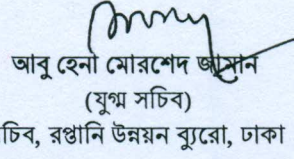 আবু হেনা মোরশেদ জামান
(যুগ্ম সচিব)
চিব, রপ্তানি উন্নয়ন ব্যুরো, ঢাকা